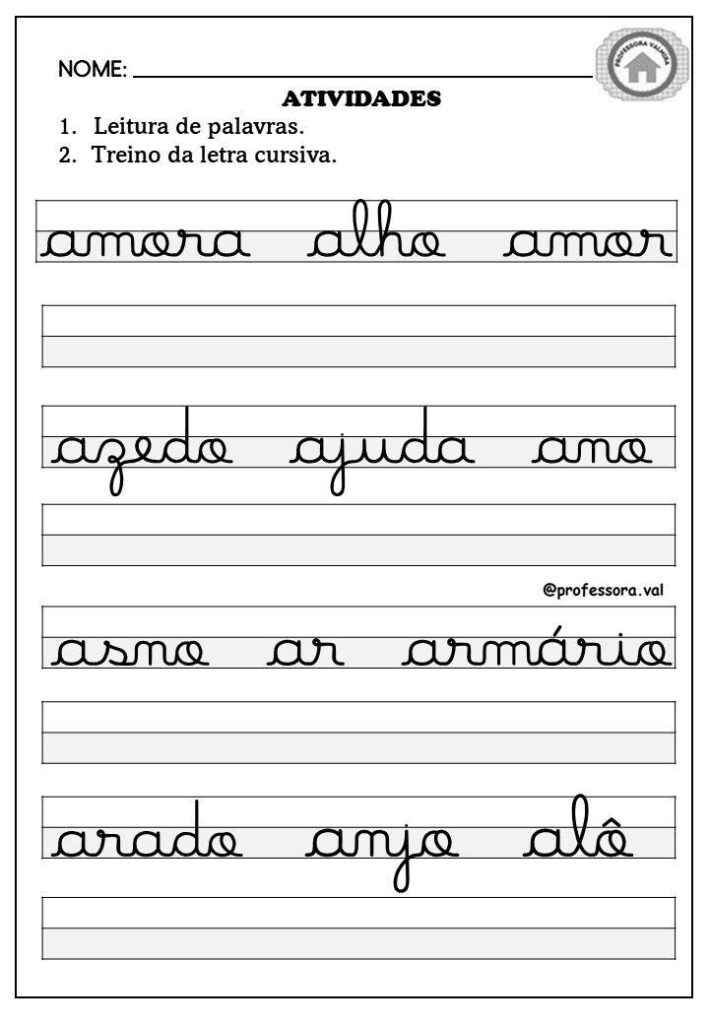 PROFESSORA VALMIRA
NOME:
ATIVIDADES
1. Leitura de palavras.
2. Treino da letra cursiva.
amora alho amor
azedo ajuda ano
@professora.val
asno ar armário
arado anjo alô